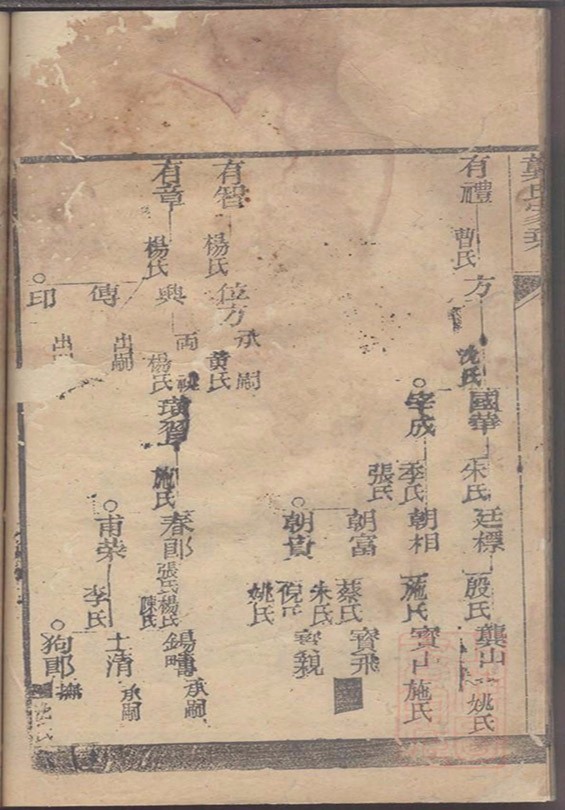 龔氏家乘
有禮
曹氏
方
沈氏
國華
朱氏
廷標
殷氏
龔山
姚氏
宇成
季氏
張氏
朝相
施氏
寶山
施氏
朝富
蔡氏
朱氏
寶飛
朝貴
倪氏
姚氏
寶親
有智
楊氏
位方
承嗣
黄氏
有章
楊氏
興
兩
楊氏
璜習
施氏
春郎
張氏
楊氏
陳氏
錫疇
承嗣
甫榮
李氏
士清
承嗣
狗郎
撫
沈氏
傳
出嗣
印
出